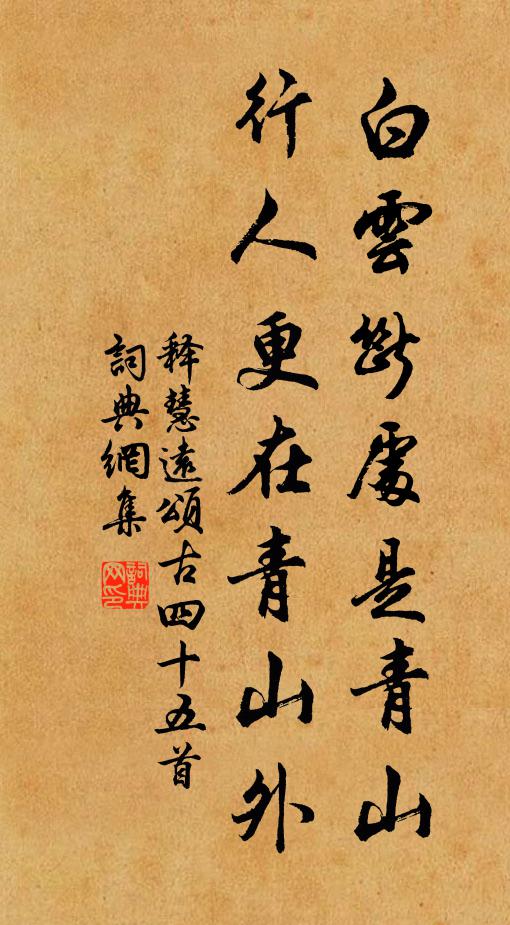 白雲斷處是青山
行人更在青山外
释慧遠頌古四十五首
詞典網集
詞典
网印